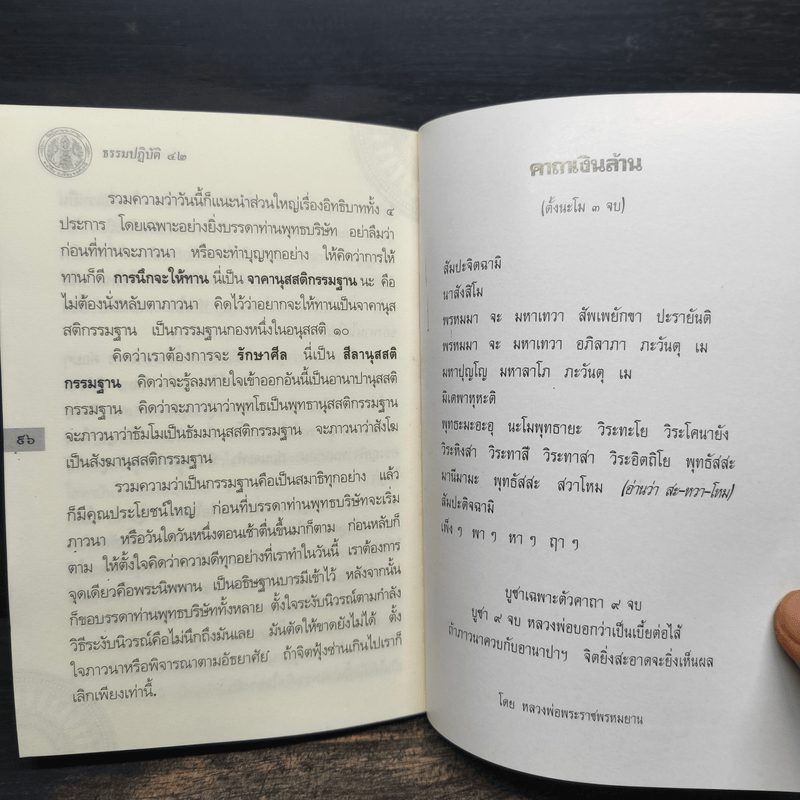 ธรรมปฏิบัติ ๔๒
รวมความว่าวันนี้ก็แนะนำส่วนใหญ่เรื่องอิทธิบาททั้ง ๔
ประการ โดยเฉพาะอย่างยิ่งบรรดาท่านพุทธบริษัท อย่าลืมว่า
ก่อนที่ท่านจะภาวนา หรือจะทำบุญทุกอย่าง ให้คิดว่าการให้
ทานก็ดี การนึกจะให้ทาน นี่เป็น จาคานุสสติกรรมฐาน นะ คือ
ไม่ต้องนั่งหลับตาภาวนา คิดไว้ว่าอยากจะให้ทานเป็นจาคานุส
สติกรรมฐาน เป็นกรรมฐานกองหนึ่งในอนุสสติ ๑๐
คิดว่าเราต้องการจะ รักษาศีล นี่เป็น สีลานุสสติ
กรรมฐาน คิดว่าจะรู้ลมหายใจเข้าออกอันนี้เป็นอานาปานุสสติ
กรรมฐาน คิดว่าจะภาวนาว่าพุทโธเป็นพุทธานุสสติกรรมฐาน
จะภาวนาว่าธัมโมเป็นธัมมานุสสติกรรมฐาน จะภาวนาว่าสังโฆ
เป็นสังฆานุสสติกรรมฐาน
รวมความว่าเป็นกรรมฐานคือเป็นสมาธิทุกอย่าง แล้ว
ก็มีคุณประโยชน์ใหญ่ ก่อนที่บรรดาท่านพุทธบริษัทจะเริ่ม
ภาวนา หรือวันใดวันหนึ่งตอนเช้าตื่นขึ้นมาก็ตาม ก่อนหลับก็
ตาม ให้ตั้งใจคิดว่าความดีทุกอย่างที่เราทำในวันนี้ เราต้องการ
จุดเดียวคือพระนิพพาน เป็นอธิษฐานบารมีเข้าไว้ หลังจากนั้น
ก็ขอบรรดาท่านพุทธบริษัททั้งหลาย ตั้งใจระงับนิวรณ์ตามกำลัง
วิธีระงับนิวรณ์คือไม่นึกถึงมันเลย มันตัดให้ขาดยังไม่ได้ ตั้ง
ใจภาวนาหรือพิจารณาตามอัธยาศัย ถ้าจิตฟุ้งซ่านเกินไปเราก็
เลิกเพียงเท่านี้.
๕๖
คาถาเงินล้าน
(ตั้งนะโม ๓ จบ)
สัมปะจิตฉามิ
นาสังสิโม
พรหมมา จะ มหาเทวา สัพเพยักขา ปะรายันติ
พรหมมา จะ มหาเทวา อภิลาภา ภะวันตุ เม
มหาปุญโญ มหาลาโภ ภะวันตุ เม
มิเตพาหุหะติ
พุทธะมะอะอุ นะโมพุทธายะ วิระทะโย วิระโคนายัง
วิระหิงสา วิระทาสี วิระทาสา วิระอิตถิโย พุทธัสสะ
มานีมามะ พุทธัสสะ สวาโหม (อ่านว่า สะ-หวา-โหม)
สัมปะติจฉามิ
เพ็ง ๆ พา ๆ หา ๆ ฤา ๆ
บูชาเฉพาะตัวคาถา ๙ จบ
บูชา ๙ จบ หลวงพ่อบอกว่าเป็นเบี้ยต่อไส้
ถ้าภาวนาควบกับอานาปาฯ จิตยิ่งสะอาดจะยิ่งเห็นผล
โดย หลวงพ่อพระราชพรหมยาน